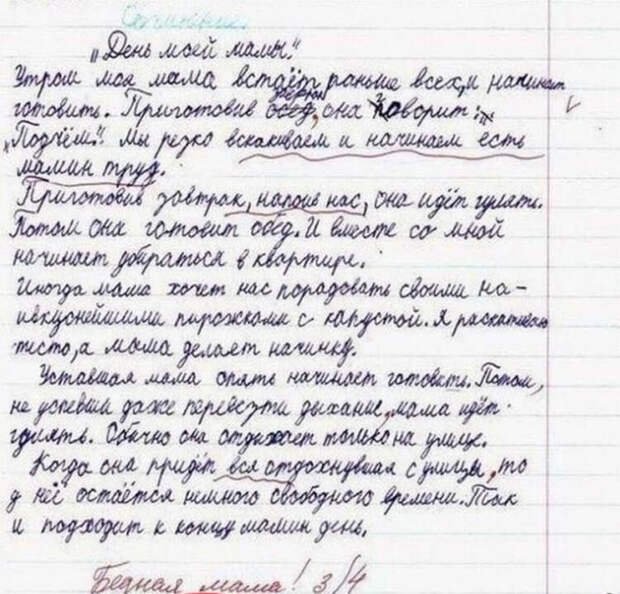 Сочинение.
„День моей мамы."
Утром моя мама встаёт раньше всех, и начинает
готовить. Приготовив обед, она говорит:
„Подъём". Мы резко вскакиваем и начинаем есть
мамин труд.
Приготовив завтрак, напоив нас, она идёт гулять.
Потом она готовит обед. И вместе со мной
начинает убираться в квартире.
Иногда мама хочет нас порадовать своими на-
ивкуснейшими пирожками с капустой. Я раскатываю
тесто, а мама делает начинку.
Уставшая мама опять начинает готовить. Потом,
не успевши даже перевезти дыхание, мама идёт
гулять. Обычно она отдыхает только на улице.
Когда она придёт вся отдохнувшая с улицы, то
у неё остаётся немного свободного времени. Так
и подходит к концу мамин день.
Бедная мама! 3/4